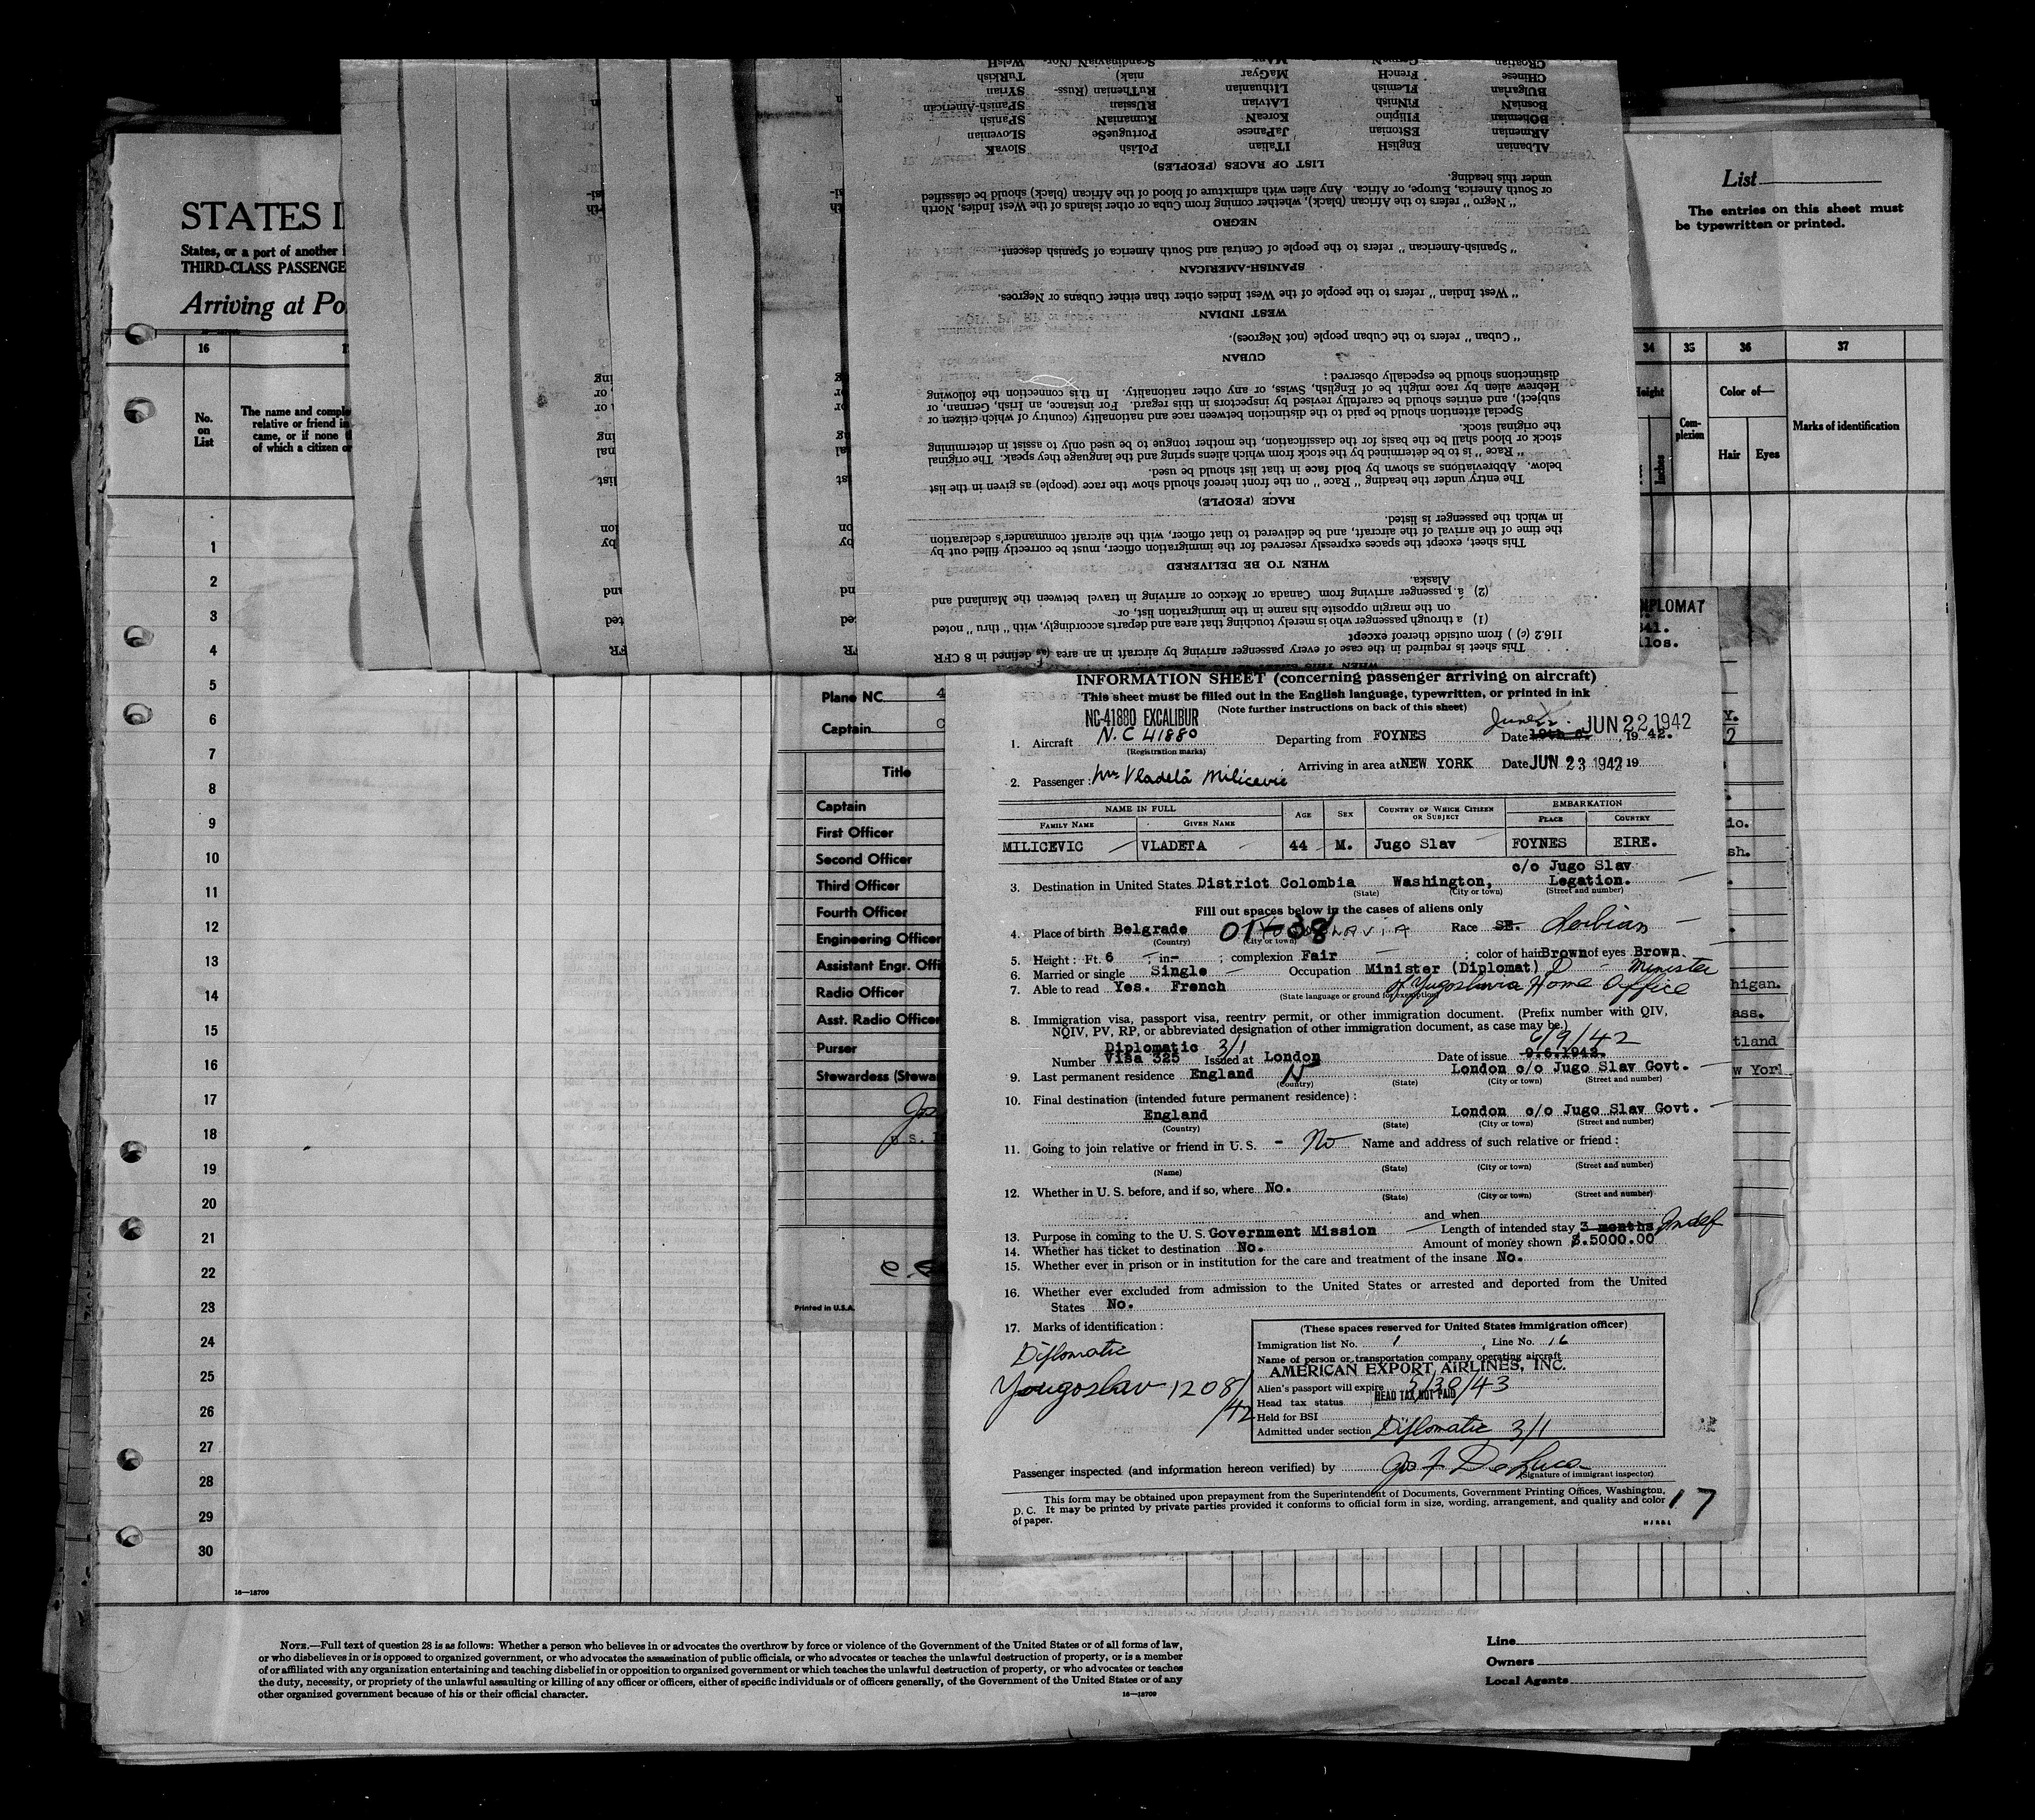 STATES I
States, or a part of another i
THIRD-CLASS PASSENGE
Arriving at Po
16
No.
on
List
The name and comple
relative or friend in
came, or if none
of which a citizen or
1
2
3
4
5
6
7
8
9
10
11
12
13
14
15
16
17
18
19
20
21
22
23
24
25
26
27
28
29
30
16—18709
List
The entries on this sheet must
be typewritten or printed.
34 35 36 37
Height
Inches
Com-
plexion
Color of—
Hair Eyes
Marks of identification
This sheet is required in the case of every passenger arriving by aircraft in an area (as defined in 8 CFR
116.2 (c) ) from outside thereof except
(1) a through passenger who is merely touching that area and departs accordingly, with "thru" noted
on the margin opposite his name in the immigration list, or
(2) a passenger arriving from Canada or Mexico or arriving in travel between the Mainland and
Alaska.
WHEN TO BE DELIVERED
This sheet, except the spaces expressly reserved for the immigration officer, must be correctly filled out by
the time of the arrival of the aircraft, and be delivered to that officer, with the aircraft commander's declaration
in which the passenger is listed.
RACE (PEOPLE)
The entry under the heading "Race" on the front hereof should show the race (people) as given in the list
below. Abbreviations as shown by bold face in that list should be used.
"Race" is to be determined by the stock from which aliens spring and the language they speak. The original
stock or blood shall be the basis for the classification, the mother tongue to be used only to assist in determining
the original stock.
Special attention should be paid to the distinction between race and nationality (country of which citizen or
subject), and entries should be carefully revised by inspectors in this regard. For instance, an Irish, German, or
Hebrew alien by race might be of English, Swiss, or any other nationality. In this connection the following
distinctions should be especially observed:
CUBAN
"Cuban" refers to the Cuban people (not Negroes).
WEST INDIAN
"West Indian" refers to the people of the West Indies other than either Cubans or Negroes.
SPANISH-AMERICAN
"Spanish-American" refers to the people of Central and South America of Spanish descent.
NEGRO
"Negro" refers to the African (black), whether coming from Cuba or other islands of the West Indies, North
or South America, Europe, or Africa. Any alien with admixture of blood of the African (black) should be classified
under this heading.
LIST OF RACES (PEOPLES)
ALbanian EnglisH ITalian PoLish SlovaK
ARmenian EStonian JaPanese PortugueSe SLovenian
BOhemian Filipino KoreaN RumaniaN SPanish
BosniaN FiNnisH LAtvian RUssian SPanish-American
BUlgarian FLemish LIthuanian RuThenian (Russ- SYrian
CHinese FrencH MaGyar niak) TuRkish
CRoatian GermaN Scandinavian (Nor- WelsH
Plane NC 4
Captain
Title
Captain
First Officer
Second Officer
Third Officer
Fourth Officer
Engineering Officer
Assistant Engr. Offi
Radio Officer
Asst. Radio Officer
Purser
Stewardess (Stewa
Printed in U.S.A.
INFORMATION SHEET (concerning passenger arriving on aircraft)
This sheet must be filled out in the English language, typewritten, or printed in ink
(Note further instructions on back of this sheet)
NC-41880 EXCALIBUR
1. Aircraft N.C 41880 Departing from FOYNES Date June 22 JUN 22 1942 , 1942.
(Registration marks)
Arriving in area at NEW YORK Date JUN 23 1942 19
2. Passenger: Mr Vladeta Milicevic
NAME IN FULL AGE SEX COUNTRY OF WHICH CITIZEN OR SUBJECT EMBARKATION
FAMILY NAME GIVEN NAME PLACE COUNTRY
MILICEVIC VLADETA 44 M. Jugo Slav FOYNES EIRE.
c/o Jugo Slav
3. Destination in United States District Colombia Washington, Legation.
(State) (City or town) (Street and number)
Fill out spaces below in the cases of aliens only
4. Place of birth Belgrade 01-38 YUGOSLAVIA Race SE. Serbian
(Country) (City or town)
5. Height: Ft. 6 ; in- ; complexion Fair ; color of hair Brown of eyes Brown.
6. Married or single Single Occupation Minister (Diplomat) D - Minister
7. Able to read Yes. French of Yugoslavia Home Office
(State language or ground for exemption)
8. Immigration visa, passport visa, reentry permit, or other immigration document. (Prefix number with QIV,
NQIV, PV, RP, or abbreviated designation of other immigration document, as case may be.)
Diplomatic 3/1 6/9/42
Number Visa 325 Issued at London Date of issue 9.6.1942.
9. Last permanent residence England London c/o Jugo Slav Govt.
(Country) (State) (City or town) (Street and number)
10. Final destination (intended future permanent residence):
England London c/o Jugo Slav Govt.
(Country) (State) (City or town) (Street and number)
11. Going to join relative or friend in U. S. - No Name and address of such relative or friend:
(Name) (State) (City or town) (Street and number)
12. Whether in U. S. before, and if so, where No.
(State) (City or town) (Street and number)
and when
13. Purpose in coming to the U. S. Government Mission Length of intended stay 3 months Indef
14. Whether has ticket to destination No. Amount of money shown $.5000.00
15. Whether ever in prison or in institution for the care and treatment of the insane No.
16. Whether ever excluded from admission to the United States or arrested and deported from the United
States No.
17. Marks of identification:
Diplomatic
Yougoslav 1208/
/42
(These spaces reserved for United States immigration officer)
Immigration list No. 1 , Line No. 16
Name of person or transportation company operating aircraft
AMERICAN EXPORT AIRLINES, INC.
Alien's passport will expire 5/30/43
Head tax status HEAD TAX NOT PAID
Held for BSI
Admitted under section Diplomatic 3/1
Passenger inspected (and information hereon verified) by Jos F De Luca
(Signature of immigrant inspector)
This form may be obtained upon prepayment from the Superintendent of Documents, Government Printing Offices, Washington,
D. C. It may be printed by private parties provided it conforms to official form in size, wording, arrangement, and quality and color
of paper.
17
DIPLOMAT
higan.
ass.
tland
w York
NOTE.—Full text of question 28 is as follows: Whether a person who believes in or advocates the overthrow by force or violence of the Government of the United States or of all forms of law,
or who disbelieves in or is opposed to organized government, or who advocates the assassination of public officials, or who advocates or teaches the unlawful destruction of property, or is a member
of or affiliated with any organization entertaining and teaching disbelief in or opposition to organized government or which teaches the unlawful destruction of property, or who advocates or teaches
the duty, necessity, or propriety of the unlawful assaulting or killing of any officer or officers, either of specific individuals or of officers generally, of the Government of the United States or of any
other organized government because of his or their official character.
16—18709
Line
Owners
Local Agents